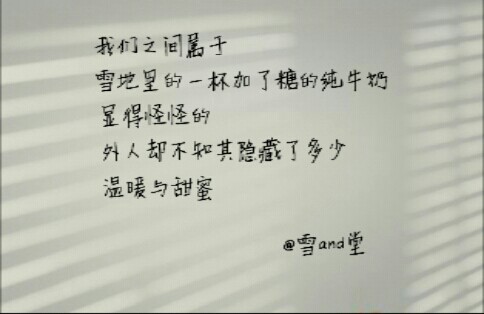 我们之间属于
雪地里的一杯加了糖的纯牛奶
显得怪怪的
外人却不知其隐藏了多少
温暖与甜蜜
@雪and堂